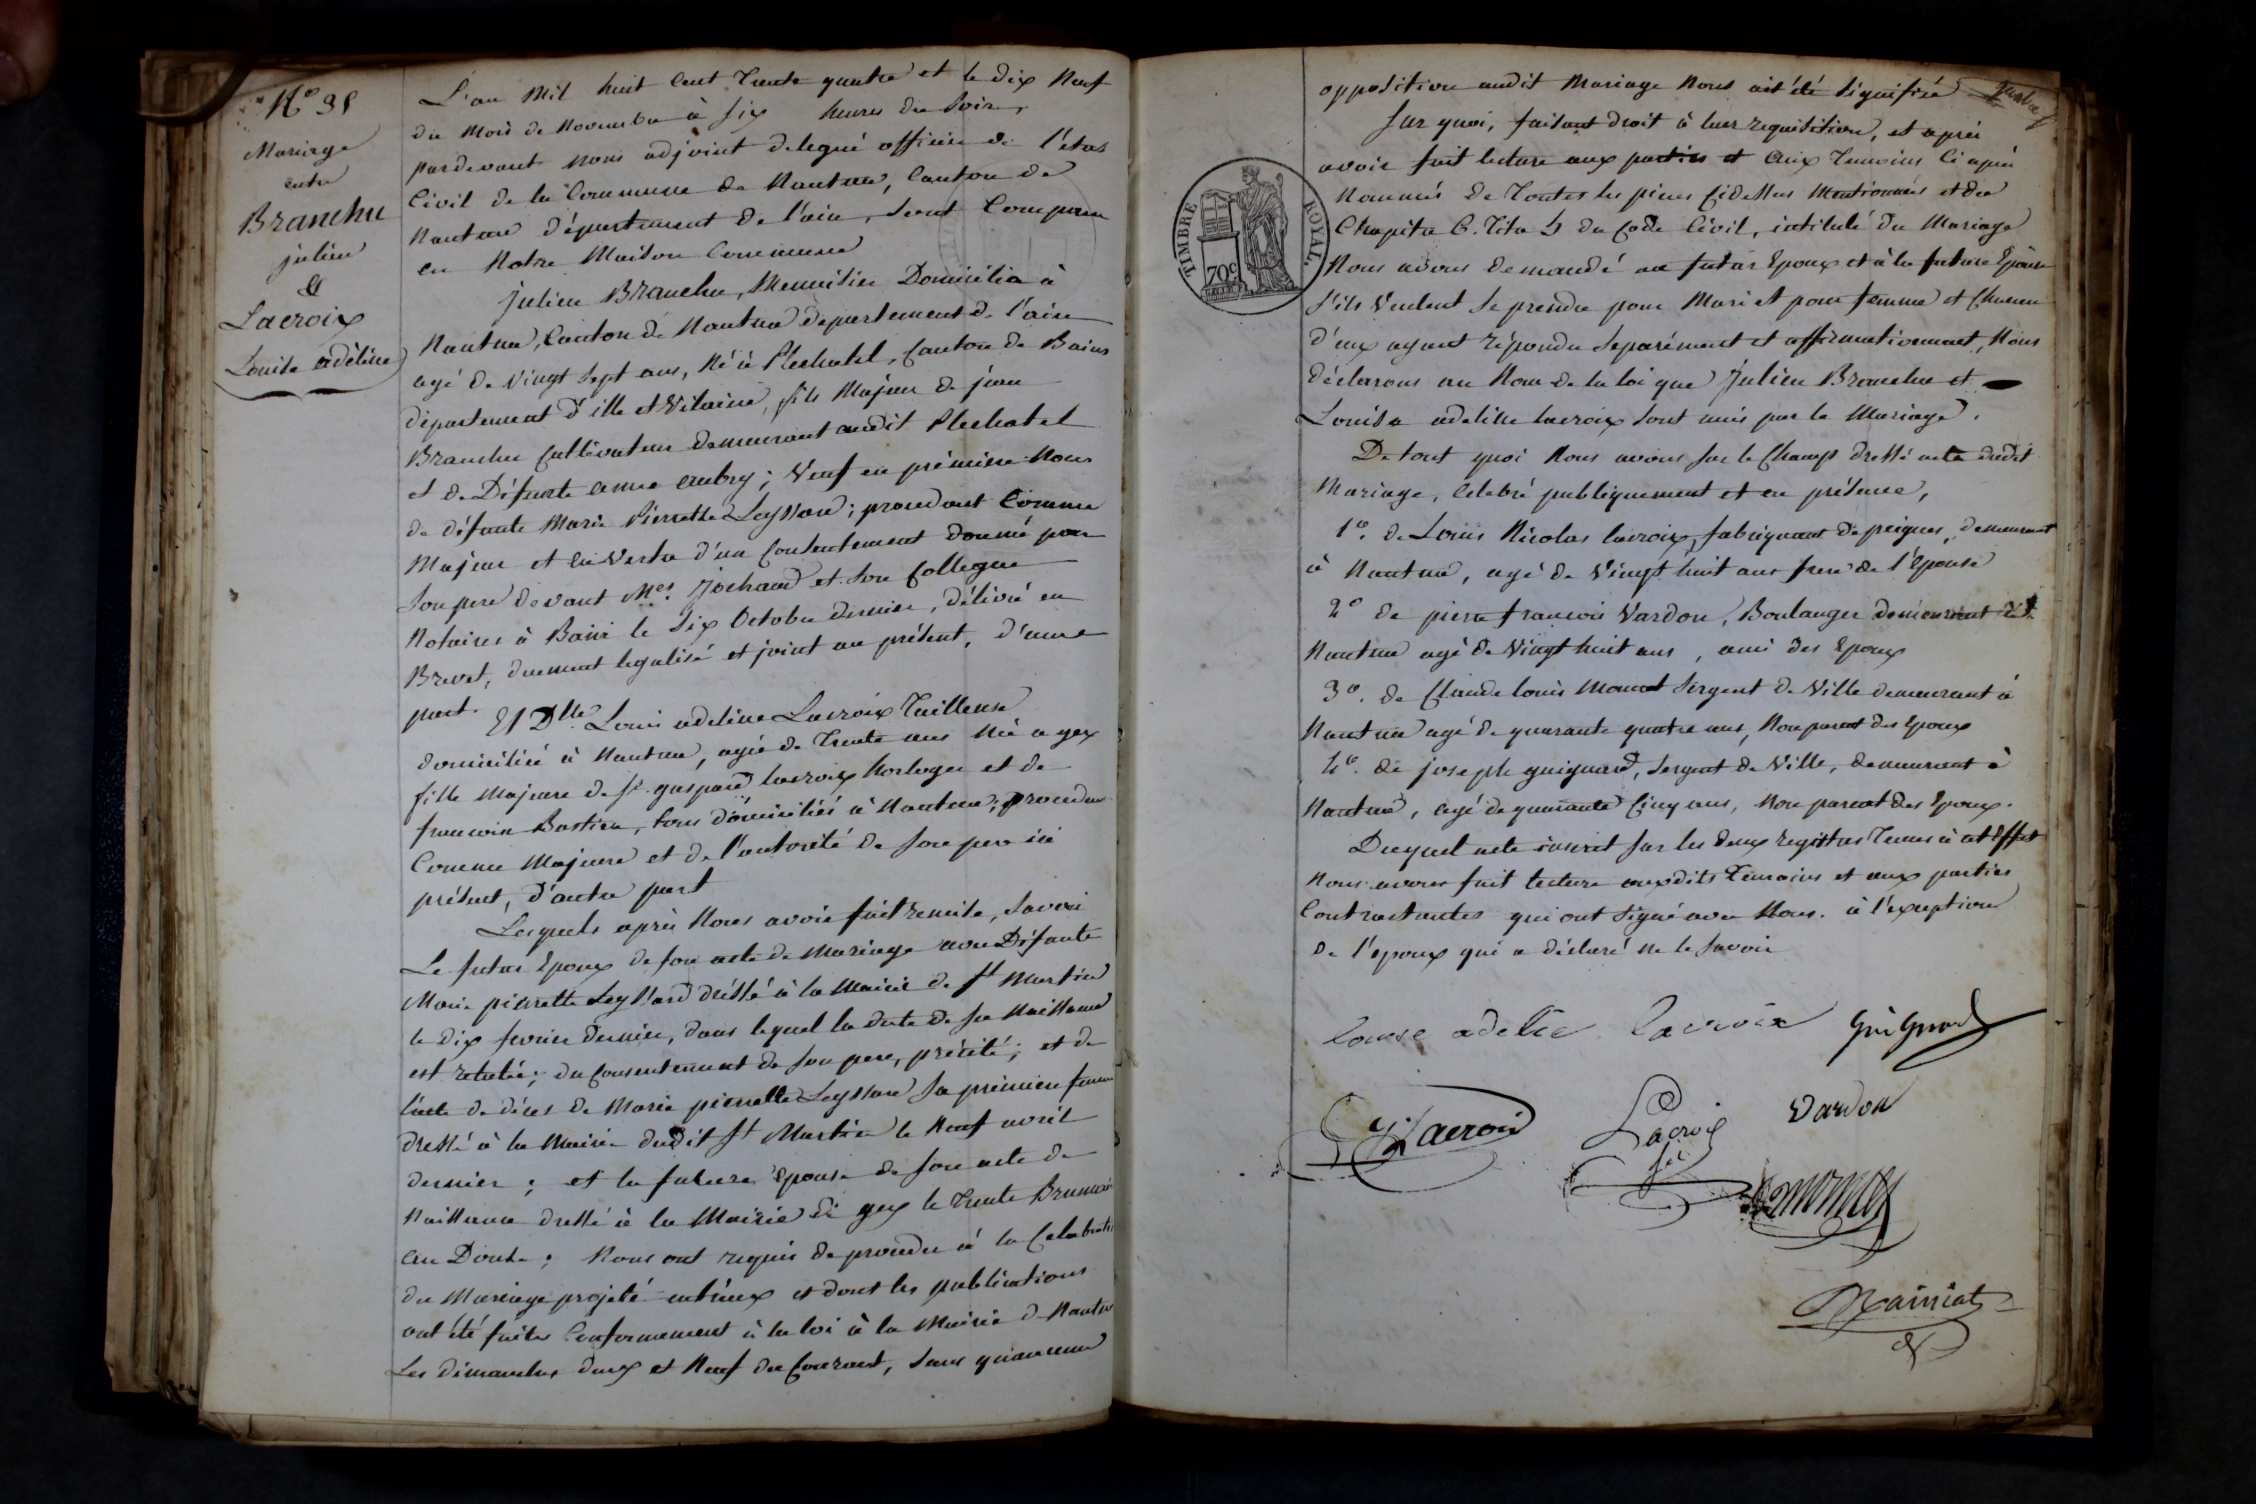 N° 35
Mariage
entre
Branchu
julien
&
Lacroix
Louise adèline
L'an Mil huit Cent Trente quatre et le dix Neuf
du Mois de Novembre à Six heures du Soir,
pardevant nous adjoint delegué officier de l'état
Civil de la Commune de Nantua, Canton de
Nantua département de l'ain, sont Comparu
en Notre Maison Commune
Julien Branchu, Menuisier Domicilié à
Nantua, Canton de Nantua département de l'ain
agé de Vingt Sept ans, Né à Plechatel, Canton de Bains
département d'ille et Vilaine, fils Majeur de jean
Branchu Cultivateur demeurant audit Plechatel
et de Défunte anne aubry; Veuf en prémière Noces
de défunte Marie Pierrette Leyssard; procedant Comme
Majeur et en Vertu d'un Consentement donné par
Son pere devant Mes. Jochaud et Son Collegue
Notaires à Bains le Six Octobre dernier, délivré en
Brevet, duement legalisé et joint au présent, d'une
part.
Et Dlle Louise adeline Lacroix Tailleuse
domiciliée à Nantua, agée de Trente ans Née a gex
fille Majeure de Sr. gaspard lacroix horloger et de
francoise Bastian, tous domiciliés à Nantua; procedant
Comme Majeure et de l'autorité de Son pere ici
présent, d'autre part
Lesquels après Nous avoir fait remise, Savoir
Le futur Epoux de son acte de Mariage avec Défunte
Marie pierrette Leyssard dréssé à la Mairie de St Martin
le dix fevrier dernier, dans lequel la date de sa Naissance
est relatée; du Consentement de Son pere, précité; et de
l'acte de décès de Marie pierrette Leyssard Sa première femme
dressé à la Mairie dudit St Martin le Neuf avril
dernier; et la future Epouse de Son acte de
Naissance dressé à la Mairie de gex le Trente Brumaire
an Douze; Nous ont requis de proceder à la Celebration
du Mariage projeté entr'eux et dont les publications
ont été faites Conformement à la loi à la Mairie de Nantua
Les dimanches deux et Neuf du Courant, Sans qu'aucune
opposition audit Mariage Nous ait été Signifiée
Sur quoi, faisant droit à leur requisition, et après
avoir fait lecture aux parties et aux Temoins Ci après
Nommés de Toutes les pièces Cidessus Mentionnées et du
Chapitre 6. Titre 5 du Code Civil, intitulé du Mariage
Nous avons demandé au futur Epoux et à la future Epouse
S'ils Veulent Se prendre pour Mari et pour femme et Chacun
d'eux ayant répondu Separément et affirmativement, Nous
déclarons au Nom de la loi que Julien Branchu et
Louise adeline lacroix Sont unis par le Mariage.
De tout quoi Nous avons Sur le Champ dressé acte dudit
Mariage, Celebré publiquement et en présence,
1°. de Louis Nicolas lacroix, fabriquant de peignes, demeurant
à Nantua, agé de Vingt huit ans frere de l'Epouse
2° de pierre francois Vardon, Boulanger demeurant à
Nantua agé de Vingt huit ans, ami des Epoux
3°. de Claude louis Monnet Sergent de Ville demeurant à
Nantua agé de quarante quatre ans, Non parent des Epoux
4°. de joseph guignard, Sergent de Ville, demeurant à
Nantua, agé de quarante Cinq ans, Non parent des Epoux.
Duquel acte inscrit Sur les deux registres Tenus à cet Effet
Nous avons fait lecture auxdits Temoins et aux parties
Contractantes qui ont Signé avec Nous. à l'exception
de l'epoux qui a déclaré ne le Savoir
TIMBRE ROYAL.
70c
louise adelie lacroix Guignard
Lacroix
Lacroix
Vardon
Monnet